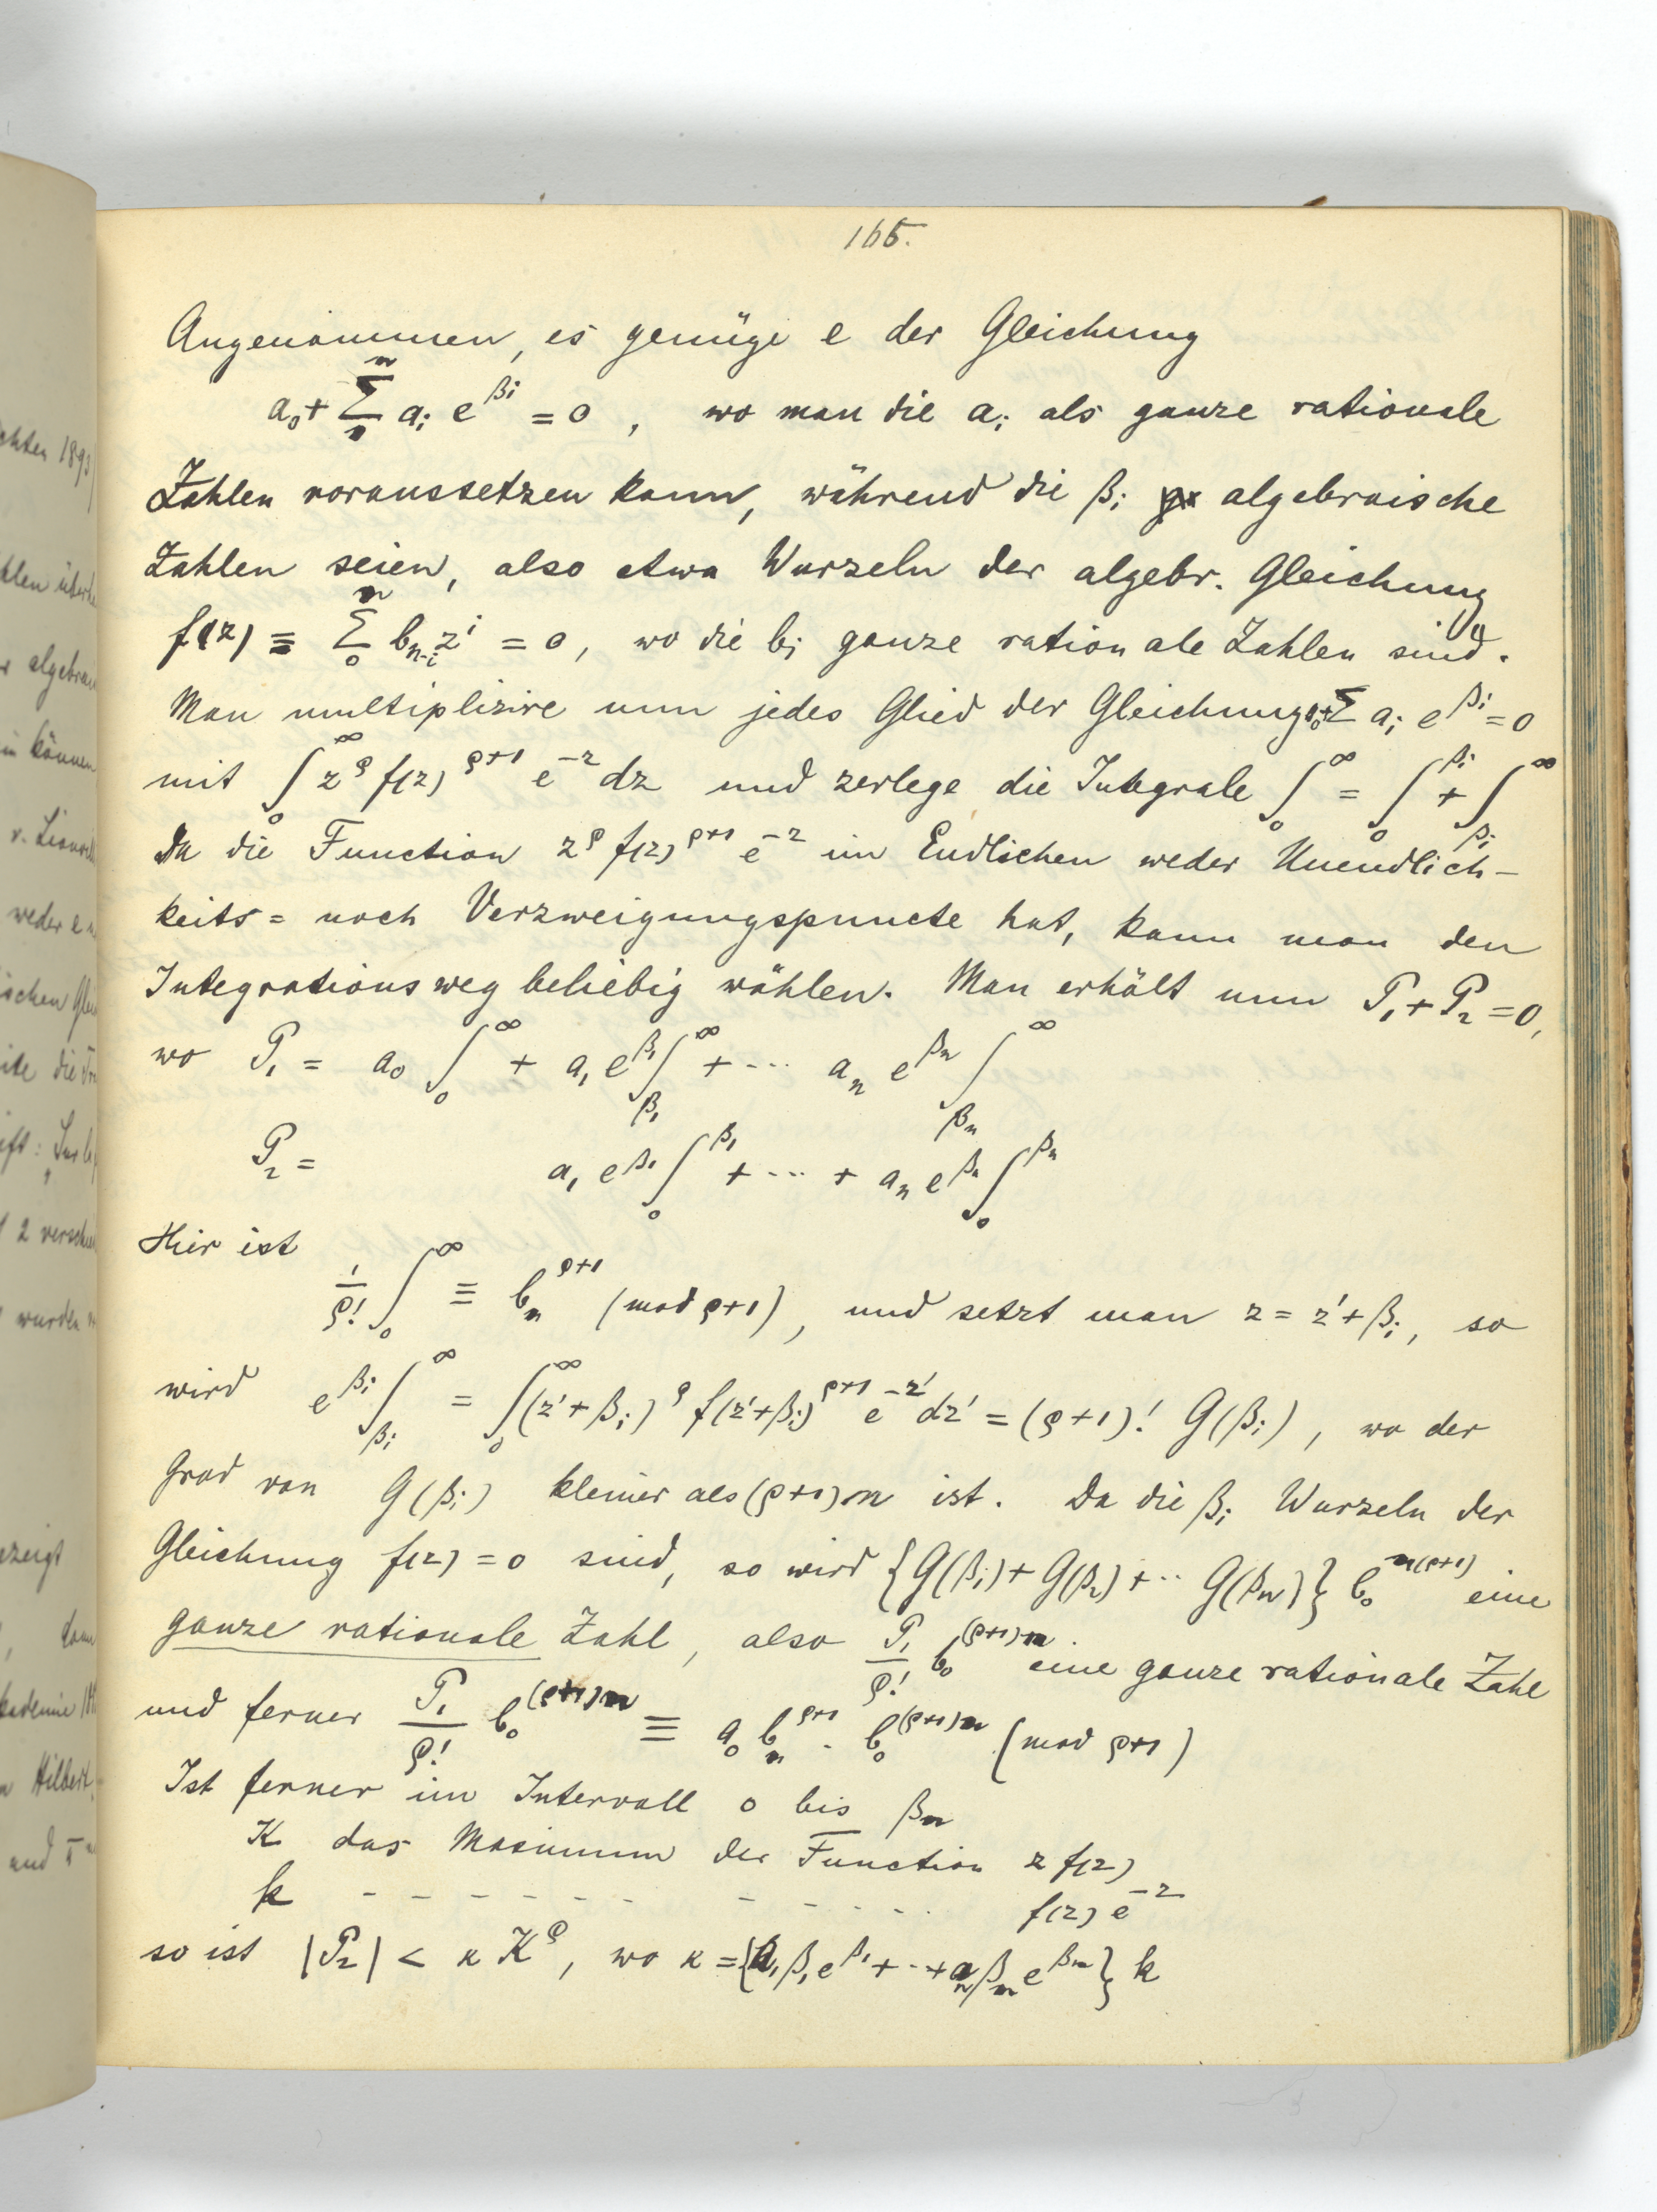 165.
Angenommen, es genüge e der Gleichung
a₀ + Σ₁ⁿ aᵢ e^{βᵢ} = 0 , wo man die aᵢ als ganze rationale
Zahlen voraussetzen kann, während die βᵢ algebraische
Zahlen seien, also etwa Wurzeln der algebr. Gleichung
f(z) ≡ Σ₀ⁿ b_{n-i} zⁱ = 0, wo die bᵢ ganze rationale Zahlen sind.
Man multiplizire nun jedes Glied der Gleichung a₀+Σ aᵢ e^{βᵢ} = 0
mit ∫₀^∞ z^ρ f(z)^{ρ+1} e^{-z} dz und zerlege die Integrale ∫₀^∞ = ∫₀^{βᵢ} + ∫_{βᵢ}^∞
Da die Function z^ρ f(z)^{ρ+1} e^{-z} im Endlichen weder Unendlich-
keits= noch Verzweigungspuncte hat, kann man den
Integrationsweg beliebig wählen. Man erhält nun P₁ + P₂ = 0,
wo P₁ = a₀ ∫₀^∞ + a₁ e^{β₁} ∫_{β₁}^∞ + ... aₙ e^{βₙ} ∫_{βₙ}^∞
P₂ = a₁ e^{β₁} ∫₀^{β₁} + ... + aₙ e^{βₙ} ∫₀^{βₙ}
Hier ist
1/ρ! ∫₀^∞ ≡ bₙ^{ρ+1} (mod ρ+1), und setzt man z = z' + βᵢ, so
wird e^{βᵢ} ∫_{βᵢ}^∞ = ∫₀^∞ (z'+βᵢ)^ρ f(z'+βᵢ)^{ρ+1} e^{-z'} dz' = (ρ+1)! G(βᵢ), wo der
Grad von G(βᵢ) kleiner als (ρ+1)n ist. Da die βᵢ Wurzeln der
Gleichung f(z) = 0 sind, so wird {G(β₁) + G(β₂) + ... G(βₙ)} b₀^{n(ρ+1)} eine
ganze rationale Zahl, also P₁/ρ! b₀^{(ρ+1)n} eine ganze rationale Zahl
und ferner P₁/ρ! b₀^{(ρ+1)n} ≡ a₀ bₙ^{ρ+1} . b₀^{(ρ+1)n} (mod ρ+1)
Ist ferner im Intervall 0 bis βₙ
K das Maximum der Function z f(z)
k - - - - - - - - - - - - f(z) e^{-z}
so ist |P₂| < κ K^ρ, wo κ = {a₁ β₁ e^{β₁} + ... + aₙ βₙ e^{βₙ}} k